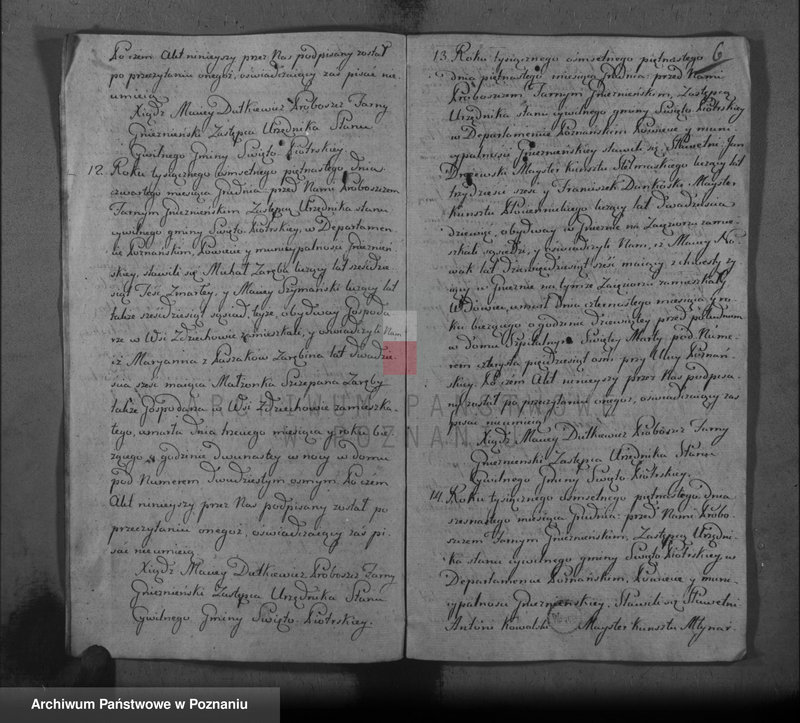 Po czem Akt ninieyszy przez Nas podpisany został
po przeczytaniu onegoż, oświadczaiący zaś pisać nie
umieią
Xiądz Maciey Dutkiewicz Proboszcz Farny
Gnieznieński Zastępca Urzędnika Stanu
Cywilnego Gminy Swięto-Piotrskiey.
12. Roku tysiącznego ośmsetnego piętnastego dnia
czwartego miesiąca Grudnia przed Nami Proboszczem
Farnym Gnieznieńskim Zastępcą Urzędnika stanu
cywilnego gminy Swięto Piotrskiey, w Departamen-
cie Poznańskim, Powiecie y municypalności Gnieznień-
skiey, stawili się Michał Zaręba liczący lat sześćdzie-
siąt Teść Zmarłey, y Maciey Szymański liczący lat
także sześćdziesiąt sąsiad teyże, obydway Gospoda-
rze w Wsi Zdziechowie zamieszkali, y oświadczyli Nam
iż Maryanna z Łuszaków Zarębina lat dwadzie-
scia sześć maiąca Małżonka Szczepana Zaręby
także Gospodarza w Wsi Zdziechowie zamieszka-
łego, umarła dnia trzeciego miesiąca y roku bie-
żącego o godzinie dwunastey w nocy w domu
pod Numerem dwudziestym osmym. Po czem
Akt ninieyszy przez Nas podpisany został po
przeczytaniu onegoż, oświadczaiący zaś pi-
sać nie umieią
Xiądz Maciey Dutkiewicz Proboszcz Farny
Gnieznieński Zastępca Urzędnika Stanu
Cywilnego Gminy Swięto-Piotrskiey.
6
13. Roku tysiącznego ośmsetnego piętnastego
dnia piętnastego miesiąca Grudnia: przed Nami
Proboszczem Farnym Gnieznieńskim, Zastępcą
Urzędnika stanu cywilnego gminy Swięto Piotrskiey
w Departamencie Poznańskim Powiecie y muni-
cypalności Gnieznieńskiey stawili się Sławetni Jan
Drzewiecki Mayster kunsztu Stelmaskiego liczący lat
trzydzieści sześć y Franciszek Dankoski Mayster
kunsztu liczący lat dwadzieścia
dziewięć, obydway w Gnieznie na Zagurzu zamie-
szkali sąsiedzi, y oświadczyli Nam, iż Maciey No-
wak lat dziewięćdziesiąt sześć maiący z
iący w Gnieznie na tymże Zagurzu zamieszkały
Wdowiec, umarł dnia czternastego miesiąca y ro-
ku bieżącego o godzinie dziewiątey przed południem
w domu Szpitalnym Swiętey Marty pod Nume-
rem czterysta pięćdziesiąt ośm przy Ulicy Poznań-
skiey. Po czem Akt ninieyszy przez Nas podpisa-
ny został po przeczytaniu onegoż, oświadczaiący zaś
pisać nie umieią
Xiądz Maciey Dutkiewicz Proboszcz Farny
Gnieznieński Zastępca Urzędnika Stanu
Cywilnego Gminy Swięto Piotrskiey.
14. Roku tysiącznego ośmsetnego piętnastego dnia
szesnastego miesiąca Grudnia: przed Nami Probo-
szczem Farnym Gnieznieńskim, Zastępcą Urzędni-
ka stanu cywilnego gminy Swięto Piotrskiey, w
Departamencie Poznańskim, Powiecie y muni-
cypalności Gnieznieńskiey. Stawili się Sławetni
Antoni Kowalski Mayster kunsztu Młynar-
ARCHIWUM PAŃSTWOWE
W POZNANIU
Archiwum Państwowe w Poznaniu